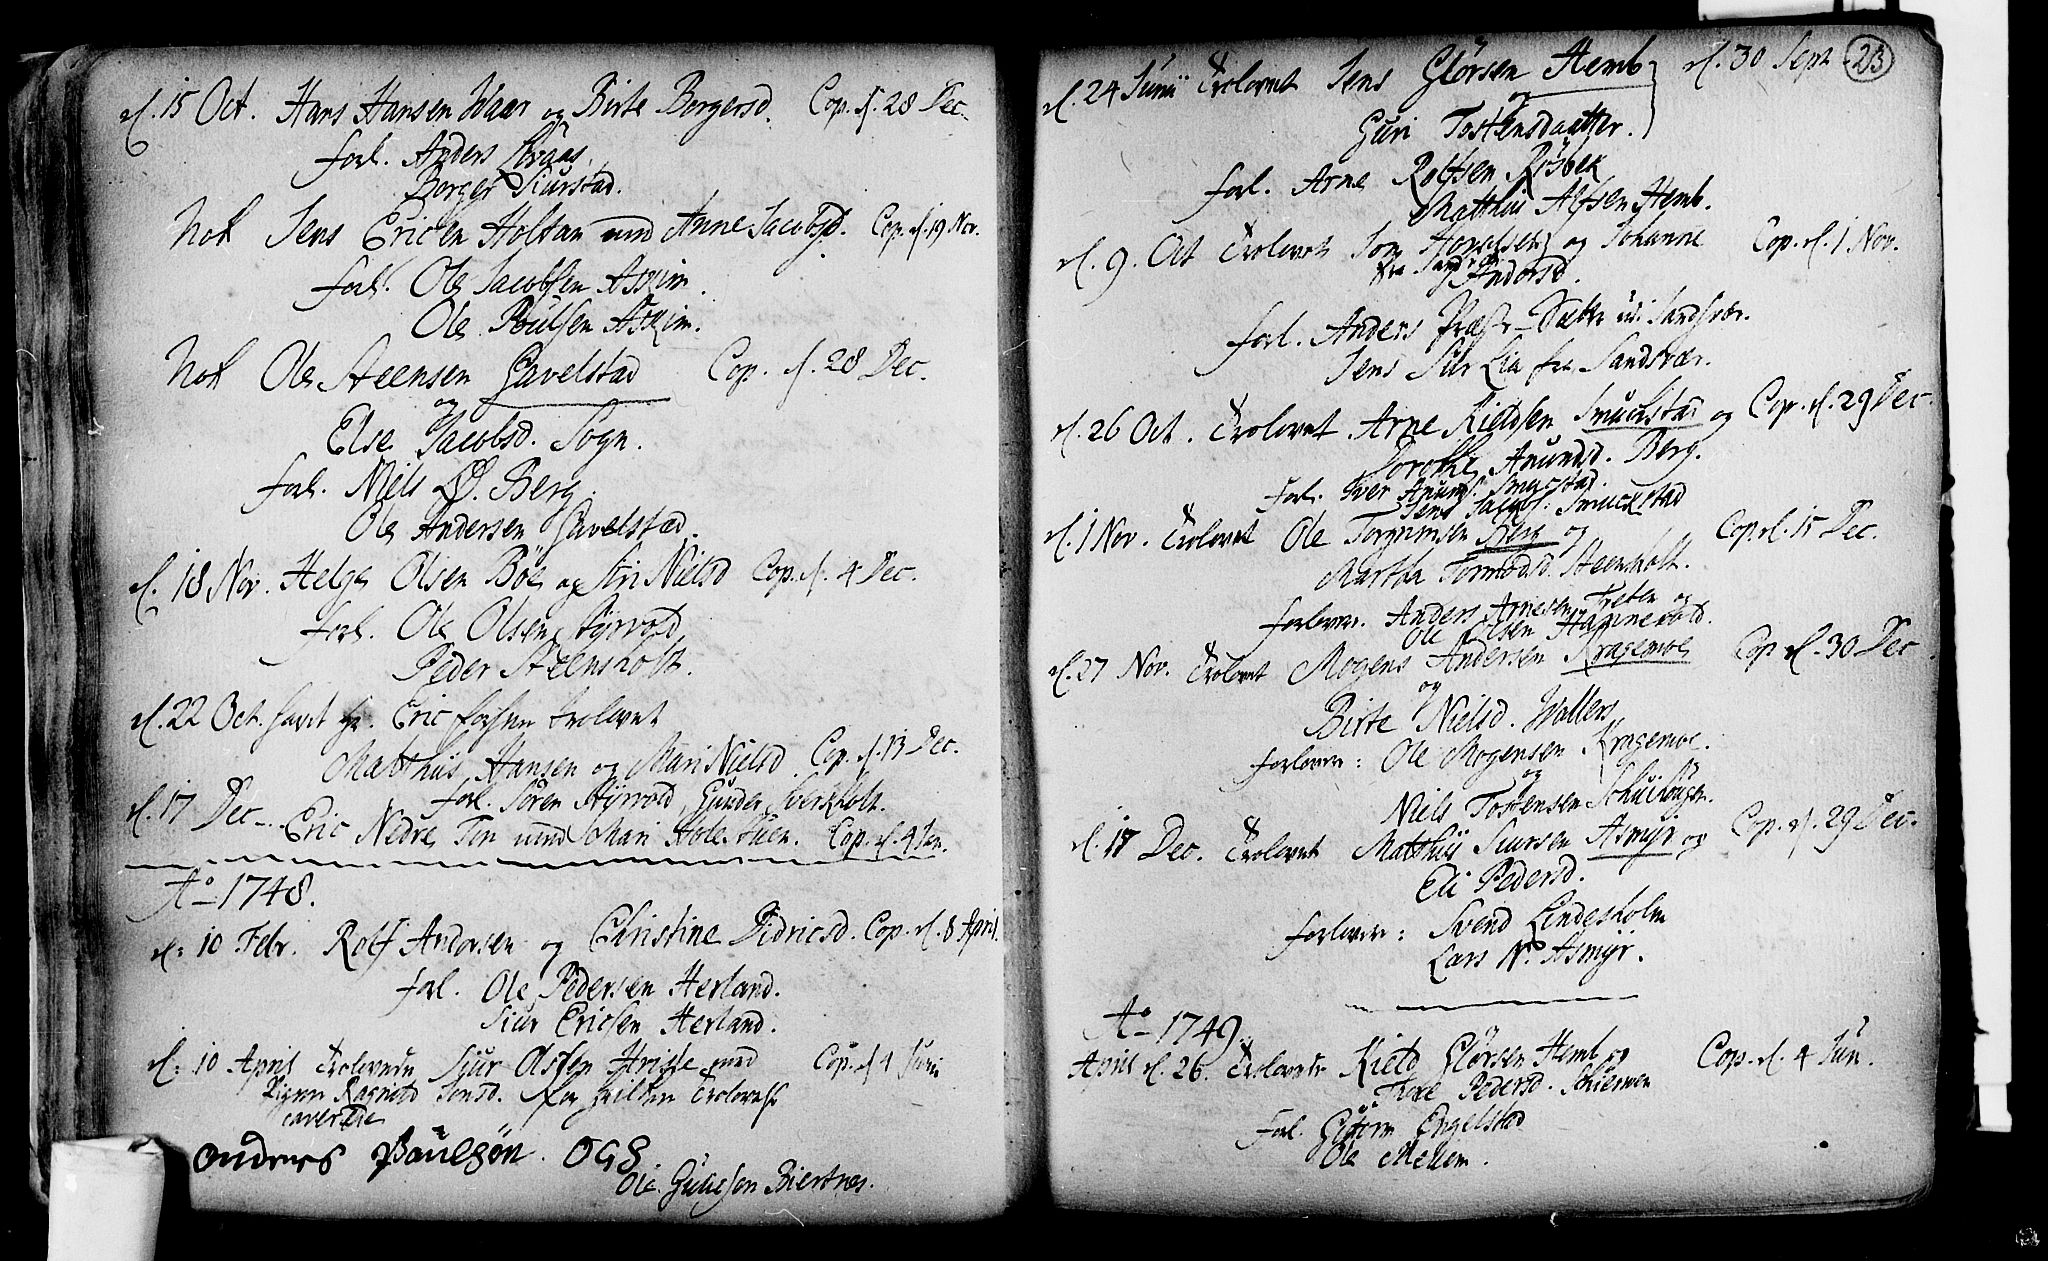 d. 15 Oct. Hans Hansen Waar og Birte Borgersd. Cop. d. 28 Dec.
forl. Anders Aaraas
Borger Siurstad.
Nok Jens Ericsen Holtan und Anne Jacobsd. Cop. d. 19 Nov.
forl. Ole Jacobsen Askim.
Ole Poulsen Askim.
Nok Ole Steensen Gavelstad Cop. d. 28 Dec.
og
Else Jacobsd. Sogn.
forl. Niels Ø. Berg.
Ole Andersen Gavelstad.
d. 18 Nov. Helge Olsen Böe og Siri Nielsd Cop. d. 4 Dec.
forl. Ole Olsen Styrvold
Peder Steensholt.
d. 22 Oct. hr. Eric trolovet
Matthis Hansen og Mari Nielsd. Cop. d. 13 Dec.
forl. Sören Styrvold, Gunder Sverkholt.
d. 17 Dec. Eric Nedre Tin und Mari Hole-Tuen. Cop. d. 4 Jan.
Ao 1748.
d: 10 Febr. Rolf Andersen og Christine Didricsd. Cop. d. 8 April.
forl. Ole Pedersen Herland.
Siur Ericsen Herland.
d: 10 April Trolovede Siur Olsen med Cop. d. 4 Juni
Pigen Ragnild Jonsd. for Trolovelse
caverede
anders Paulsön. OGS
Ole Guliksen Biertnes.
23
d. 24 Junii Trolovet Jens Glörsen Hemb d. 30 Sept
og
Guri Tostensdaatter.
forl. Arne Rolfsen Kösbek
Matthis Alfsen Hemb.
d. 9. Oct Trolovet Jon og Johanne Cop. d. 1 Nov.
fra Andersd.
forl. Anders Præste-Sæter udi Sandsvær.
Jens Lia fra Sandsvær.
d. 26 Oct. Trolovet Arne Kieldsen Smuckstad og Cop. d. 29 Dec.
Dorothe Amundsd. Berg.
forl. Iver Amunds. Smucstad.
Jens Jacobs. Smuckstad
d. 1 Nov. Trolovet Ole Torgrimsen Berg og Cop. d. 15 Dec.
Martha Tormodsd. Steenholt.
forlovere. Anders Arnesen Freten og
Ole Olsen Hannevold.
d. 27 Nov. Trolovet Mogens Andersen Kragemoe Cop d. 30 Dec
og
Birte Nielsd. Wallers
forlovere: Ole Mogensen Kragemoe.
og
Niels Tostensen Schuihougen.
d. 17 Dec. Trolovet Matthis Siursen Asmyr og Cop. d. 29 Dec.
Eli Pedersd.
forlovere: Svend Lindesholm
Lars N. Asmyr.
Ao 1749.
April d. 26. Trolovede Kield Glörsen Hemb og Cop. d. 4 Jun.
Thore Pedersd. Schierven
forl. Guttorm Engelstad
Ole Mellem.